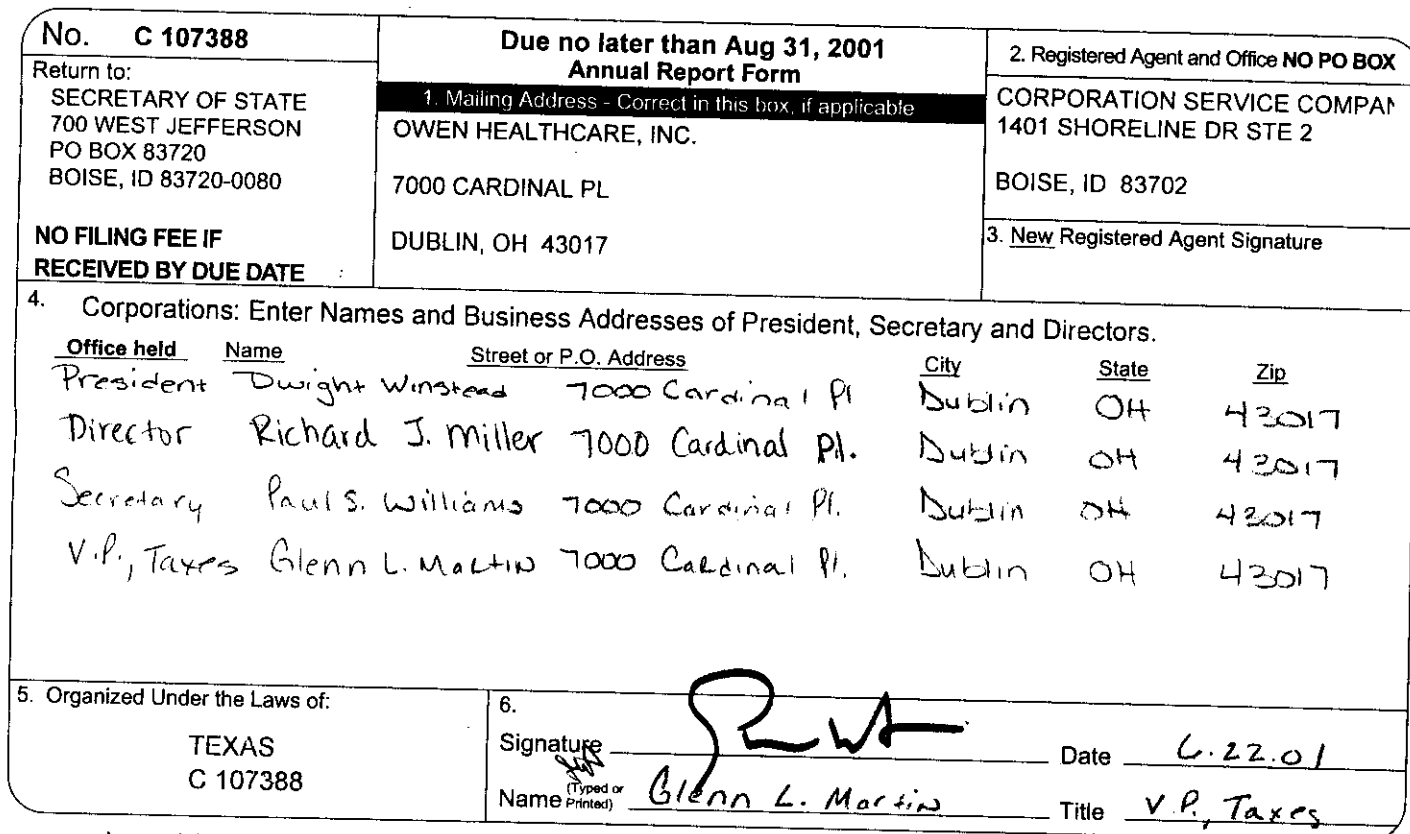 No. C 107388
Return to:
SECRETARY OF STATE
700 WEST JEFFERSON
PO BOX 83720
BOISE, ID 83720-0080
NO FILING FEE IF
RECEIVED BY DUE DATE
Due no later than Aug 31, 2001
Annual Report Form
1. Mailing Address - Correct in this box, if applicable
OWEN HEALTHCARE, INC.
7000 CARDINAL PL
DUBLIN, OH 43017
2. Registered Agent and Office NO PO BOX
CORPORATION SERVICE COMPAN
1401 SHORELINE DR STE 2
BOISE, ID 83702
3. New Registered Agent Signature
4. Corporations: Enter Names and Business Addresses of President, Secretary and Directors.
Office held Name Street or P.O. Address City State Zip
President Dwight Winstead 7000 Cardinal Pl Dublin OH 43017
Director Richard J. Miller 7000 Cardinal Pl. Dublin OH 43017
Secretary Paul S. Williams 7000 Cardinal Pl. Dublin OH 43017
V.P., Taxes Glenn L. Martin 7000 Cardinal Pl. Dublin OH 43017
5. Organized Under the Laws of:
TEXAS
C 107388
6.
Signature Date 6.22.01
Name (Typed or Printed) Glenn L. Martin Title V.P., Taxes